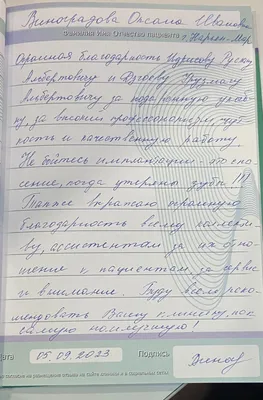 Виноградова Оксана Ивановна
ФАМИЛИЯ ИМЯ ОТЧЕСТВО ПАЦИЕНТА г. Нарьян-Мар
Огромная благодарность Идрисову Руслану
Альбертовичу и
Альбертовичу за подаренную улыбку,
за высокий профессионализм, чуткость
и качественную работу.
Не бойтесь имплантации это спасение,
когда утеряны зубы!!!
Также выражаю огромную
благодарность всему коллективу,
ассистентам за их отношение
к пациентам, за сервис
и внимание. Буду всем рекомендовать
Вашу клинику, как
самую наилучшую!
Дата 05.09.2023 Подпись